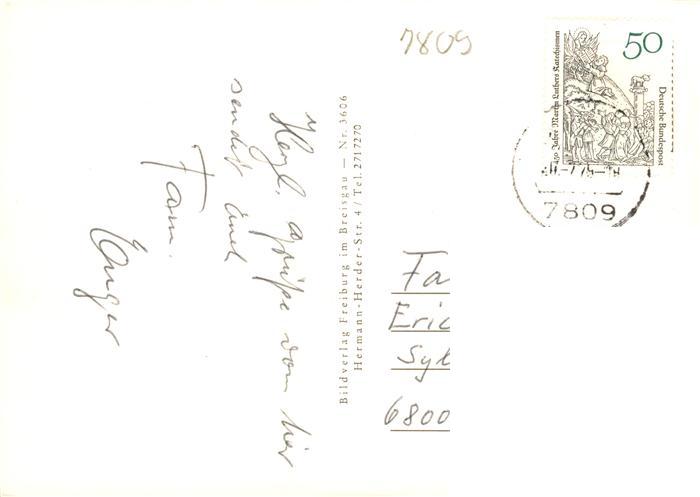 Herzl. Grüße von hier
sendet Euch
Fam.
Unger
Bildverlag Freiburg im Breisgau — Nr. 3606
Hermann-Herder-Str. 4 / Tel. 2717270
7809
50
Deutsche Bundespost
450 Jahre Martin Luthers Katechismen
7809
Fa
Eric
Syl
6800